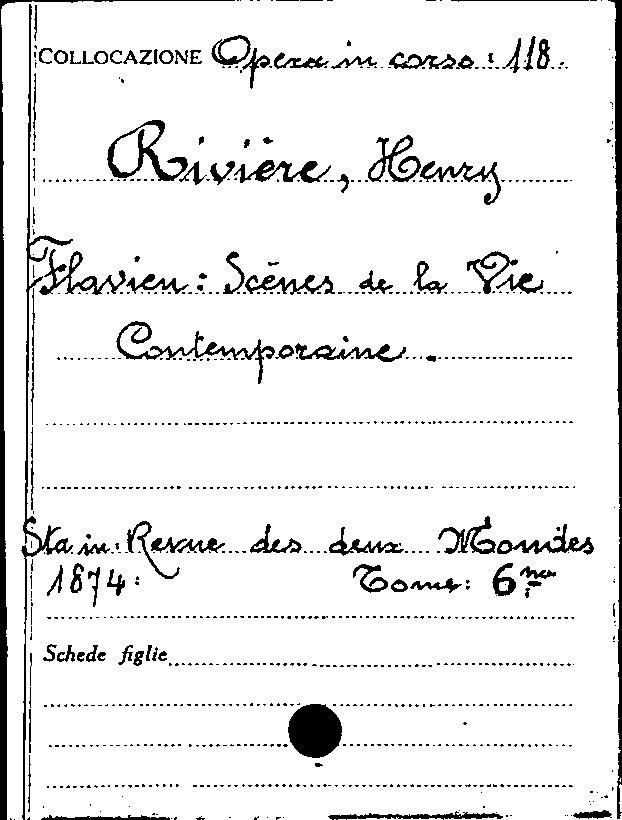 COLLOCAZIONE Opera in corso: 118.
Rivière, Henry
Flavien: Scènes de la Vie
Contemporaine.
Sta in: Revue des deux Mondes
1874: Tome: 6
Schede figlie